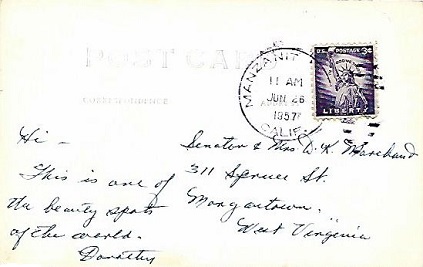 POST CARD
CORRESPONDENCE
MANZANIT
11 AM
JUN 26
1957
CALIF.
U.S. POSTAGE 3¢
LIBERTY
Hi -
This is one of
the beauty spots
of the world.
Dorothy
Senator & Mrs D. K. Marchand
311 Spruce St.
Morgantown,
West Virginia